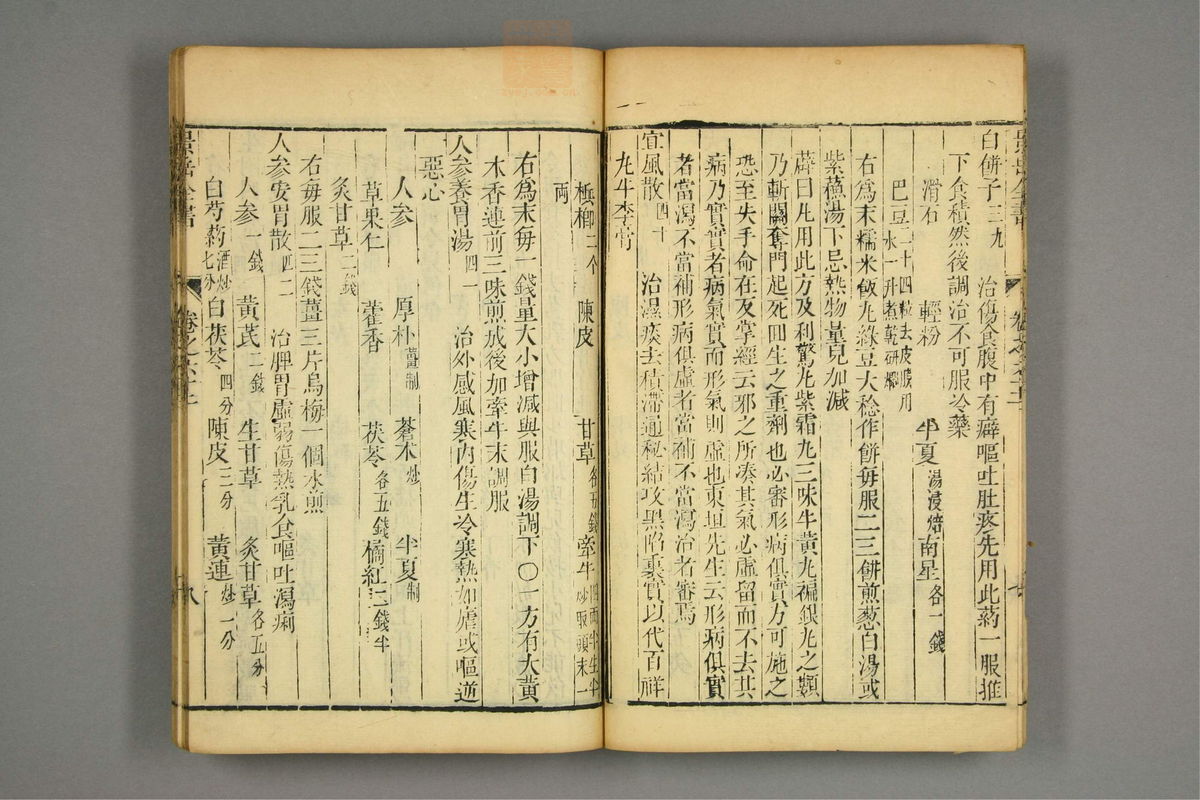 白餅子三九　治傷食腹中有癖嘔吐肚疼先用此药一服推
下食積然後調治不可服冷藥
滑石　輕粉　半夏湯浸焙　南星各一錢
巴豆二十四粒去皮膜用水一升煮乾研爛
右爲末糯米飯丸綠豆大稔作餅每服二三餅煎葱白湯或
紫蘓湯下忌熱物量兒加減
薛曰凡用此方及利驚丸紫霜丸三味牛黄丸褊銀丸之類
乃斬關奪門起死回生之重劑也必審形病俱實方可施之
恐至失手命在反掌經云邪之所凑其氣必虛留而不去其
病乃實實者病氣實而形氣則虛也東垣先生云形病俱實
者當瀉不當補形病俱虛者當補不當瀉治者審焉
宣風散四十　治濕痰去積滯通秘結攻黑陷裏實以代百祥
丸牛李膏
檳榔二个　陳皮　甘草各五錢　牽牛四両半生半炒取頭末一
両
右爲末每一錢量大小增減與服白湯調下〇一方有大黄
木香連前三味煎成後加牽牛末調服
人參養胃湯四一　治外感風寒内傷生冷寒熱如瘧或嘔逆
惡心
人參　厚朴薑制　蒼朮炒　半夏制
草果仁　藿香　茯苓各五錢　橘紅二錢半
炙甘草二錢
右每服二三錢薑三片烏梅一個水煎
人參安胃散四二　治脾胃虛弱傷熱乳食嘔吐瀉痢
人參一錢　黄芪二錢　生甘草　炙甘草各五分
白芍药酒炒七分　白茯苓四分　陳皮三分　黄連炒一分
景岳全書　卷之六十二